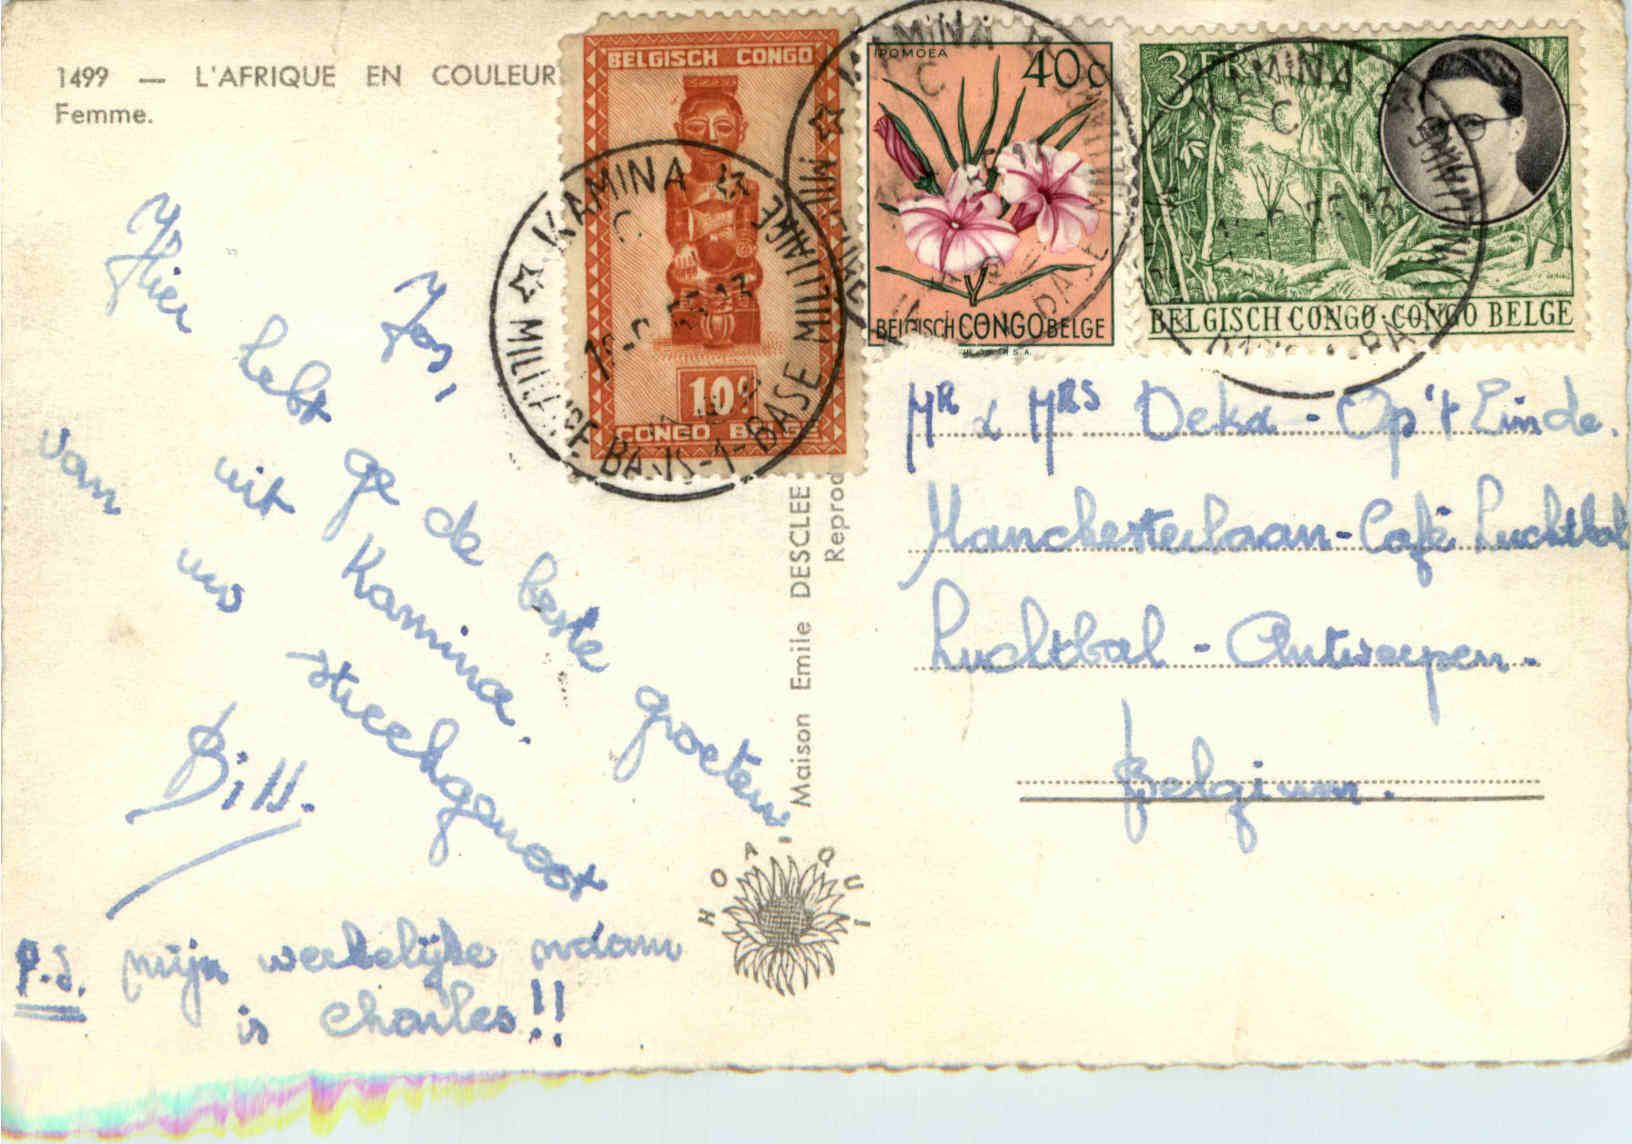 1499 — L'AFRIQUE EN COULEUR
Femme.
BELGISCH CONGO
10c
CONGO BELGE
IPOMOEA
40c
BELGISCH CONGO BELGE
3FR
BELGISCH CONGO · CONGO BELGE
KAMINA
C
MILITAIRE BASIS-1-BASE MILITAIRE
KAMINA
C
KAMINA
C
Jos,
Hier hebt ge de beste groeten
uit Kamina.
van uw streekgenoot
Bill.
P.S. mijn werkelijke naam
is Charles!!
Maison Emile DESCLEE
Reprod
HOA QUI
Mr & Mrs Deka - Op't Einde.
Manchesterlaan - Café Luchtbal
Luchtbal - Antwerpen.
Belgium.